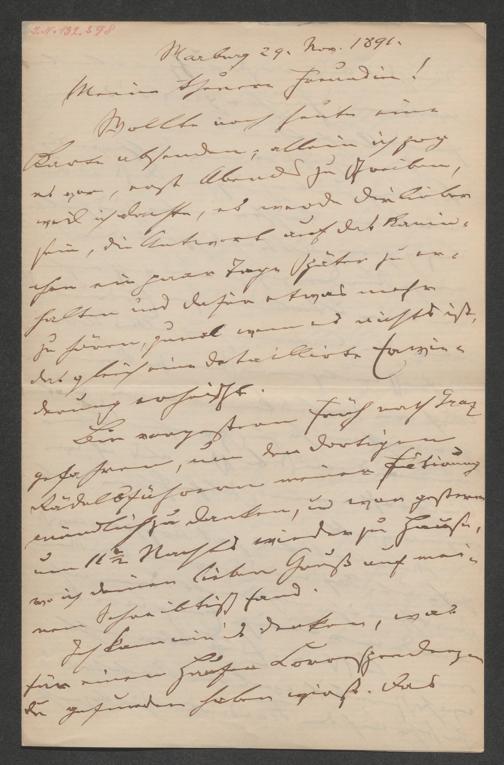 I.N. 132.598
Marburg 29. Nov. 1891.
Meine theuere Freundin!
Wollte noch heute eine
Karte absenden, allein ich zog
es vor, erst Abends zu schreiben,
weil ich dachte, es werde dir lieber
sein, die Antwort auf das
ein paar Tage später zu er-
halten und dafür etwas mehr
zu hören, zumal wenn es nichts ist,
das gleich eine detaillirte Erwie-
derung erheischt.
Bin vorgestern früh nach Graz
gefahren, um den dortigen
Rädelsführern meiner Fetirung
mündlich zu danken, u war gestern
um 11 1/2 Nachts wieder zu Hause,
wo ich deinen lieben Gruß auf mei-
nem Schreibtisch fand.
Ich kann mir's denken, was
für einen Haufen Correspondenzen
du gefunden haben wirst. Das